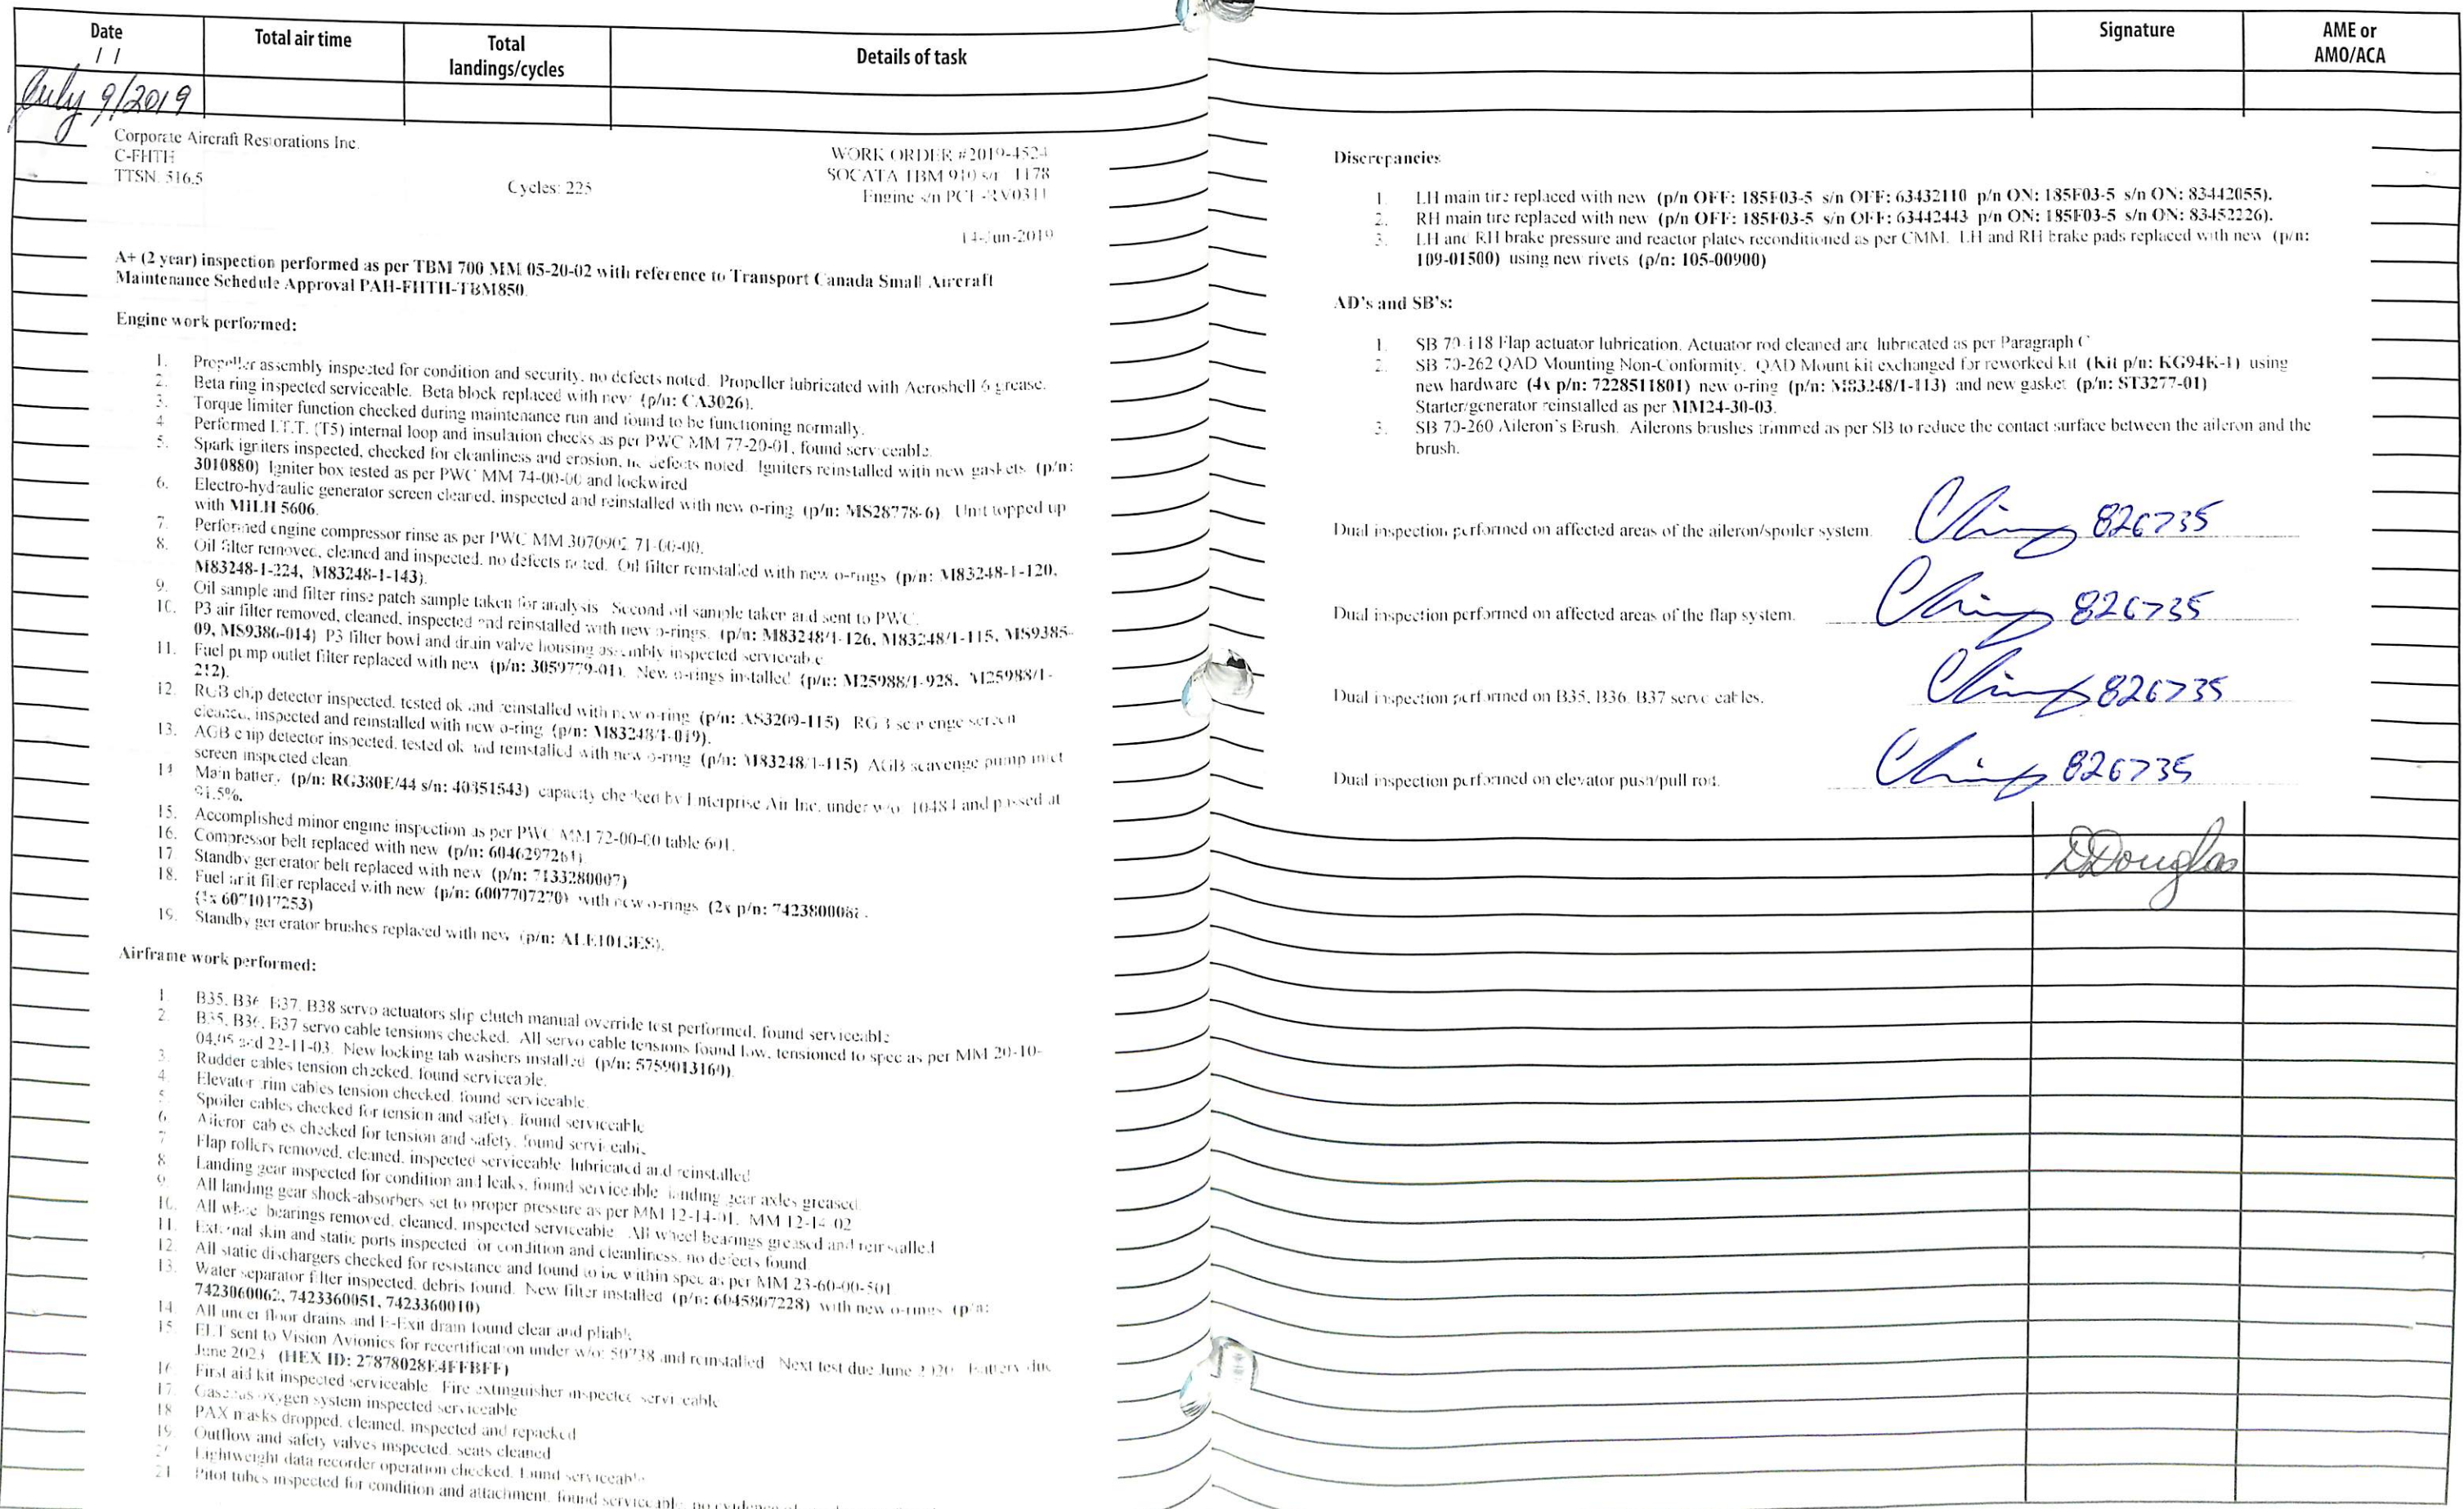 Date
/ /
Total air time
Total
landings/cycles
Details of task
Signature
AME or
AMO/ACA
July 9/2019
Corporate Aircraft Restorations Inc.
C-FHTH
TTSN: 516.5
Cycles: 225
WORK ORDER #2019-4524
SOCATA TBM 910 s/n 1178
Engine s/n PCE-RV0311
14-Jun-2019
A+ (2 year) inspection performed as per TBM 700 MM 05-20-02 with reference to Transport Canada Small Aircraft
Maintenance Schedule Approval PAH-FHTH-TBM850.
Engine work performed:
1. Propeller assembly inspected for condition and security, no defects noted. Propeller lubricated with Aeroshell 6 grease.
2. Beta ring inspected serviceable. Beta block replaced with new (p/n: CA3026).
3. Torque limiter function checked during maintenance run and found to be functioning normally.
4. Performed I.T.T. (T5) internal loop and insulation checks as per PWC MM 77-20-01, found serviceable.
5. Spark igniters inspected, checked for cleanliness and erosion, no defects noted. Igniters reinstalled with new gaskets (p/n:
3010880) Igniter box tested as per PWC MM 74-00-00 and lockwired
6. Electro-hydraulic generator screen cleaned, inspected and reinstalled with new o-ring (p/n: MS28778-6) Unit topped up
with MILH 5606.
7. Performed engine compressor rinse as per PWC MM 3070902 71-00-00.
8. Oil filter removed, cleaned and inspected, no defects noted. Oil filter reinstalled with new o-rings (p/n: M83248-1-120,
M83248-1-224, M83248-1-143).
9. Oil sample and filter rinse patch sample taken for analysis Second oil sample taken and sent to PWC.
10. P3 air filter removed, cleaned, inspected and reinstalled with new o-rings. (p/n: M83248/1-126, M83248/1-115, MS9385-
09, MS9386-014) P3 filter bowl and drain valve housing assembly inspected serviceable
11. Fuel pump outlet filter replaced with new (p/n: 3059779-01). New o-rings installed (p/n: M25988/1-928, M25988/1-
212).
12. RGB chip detector inspected, tested ok and reinstalled with new o-ring (p/n: AS3209-115) RGB scavenge screen
cleaned, inspected and reinstalled with new o-ring (p/n: M83248/1-019).
13. AGB chip detector inspected, tested ok and reinstalled with new o-ring (p/n: M83248/1-115) AGB scavenge pump inlet
screen inspected clean.
14. Main battery (p/n: RG380E/44 s/n: 40351543) capacity checked by Enterprise Air Inc. under w/o 10484 and passed at
91.5%.
15. Accomplished minor engine inspection as per PWC MM 72-00-00 table 601.
16. Compressor belt replaced with new (p/n: 6046297261).
17. Standby generator belt replaced with new (p/n: 7133280007)
18. Fuel unit filter replaced with new (p/n: 6007707270) with new o-rings (2x p/n:
6071047253)
19. Standby generator brushes replaced with new (p/n: ALE1013ES).
Airframe work performed:
1. B35, B36, B37, B38 servo actuators slip clutch manual override test performed, found serviceable
2. B35, B36, B37 servo cable tensions checked. All servo cable tensions found low, tensioned to spec as per MM 20-10-
04.05 and 22-11-03. New locking tab washers installed (p/n: 5759013169).
3. Rudder cables tension checked, found serviceable.
4. Elevator trim cables tension checked, found serviceable.
5. Spoiler cables checked for tension and safety, found serviceable
6. Aileron cables checked for tension and safety, found serviceable
7. Flap rollers removed, cleaned, inspected serviceable, lubricated and reinstalled
8. Landing gear inspected for condition and leaks, found serviceable, landing gear axles greased.
9. All landing gear shock-absorbers set to proper pressure as per MM 12-14-01, MM 12-14-02
10. All wheel bearings removed, cleaned, inspected serviceable. All wheel bearings greased and reinstalled
11. External skin and static ports inspected for condition and cleanliness, no defects found
12. All static dischargers checked for resistance and found to be within spec as per MM 23-60-00-501
13. Water separator filter inspected, debris found. New filter installed (p/n: 6045807228) with new o-rings (p/n:
7423060062, 7423360051, 7423360010)
14. All under floor drains and E-Exit drain found clear and pliable
15. ELT sent to Vision Avionics for recertification under w/o: 50738 and reinstalled Next test due June 2020 Battery due
June 2023 (HEX ID: 27878028E4FFBFF)
16. First aid kit inspected serviceable Fire extinguisher inspected serviceable
17. Gaseous oxygen system inspected serviceable
18. PAX masks dropped, cleaned, inspected and repacked
19. Outflow and safety valves inspected, seats cleaned
20. Lightweight data recorder operation checked, found serviceable
21. Pitot tubes inspected for condition and attachment, found serviceable, no evidence
Discrepancies
1. LH main tire replaced with new (p/n OFF: 185F03-5 s/n OFF: 63432110 p/n ON: 185F03-5 s/n ON: 83442055).
2. RH main tire replaced with new (p/n OFF: 185F03-5 s/n OFF: 63442443 p/n ON: 185F03-5 s/n ON: 83452226).
3. LH and RH brake pressure and reactor plates reconditioned as per CMM. LH and RH brake pads replaced with new (p/n:
109-01500) using new rivets (p/n: 105-00900)
AD's and SB's:
1. SB 70-118 Flap actuator lubrication. Actuator rod cleaned and lubricated as per Paragraph C
2. SB 70-262 QAD Mounting Non-Conformity. QAD Mount kit exchanged for reworked kit (Kit p/n: KG94K-1) using
new hardware (4x p/n: 7228511801) new o-ring (p/n: M83248/1-113) and new gasket (p/n: ST3277-01)
Starter/generator reinstalled as per MM24-30-03.
3. SB 70-260 Aileron's Brush. Ailerons brushes trimmed as per SB to reduce the contact surface between the aileron and the
brush.
Dual inspection performed on affected areas of the aileron/spoiler system. 826735
Dual inspection performed on affected areas of the flap system. 826735
Dual inspection performed on B35, B36, B37 servo cables. 826735
Dual inspection performed on elevator push/pull rod. 826735
DDouglas